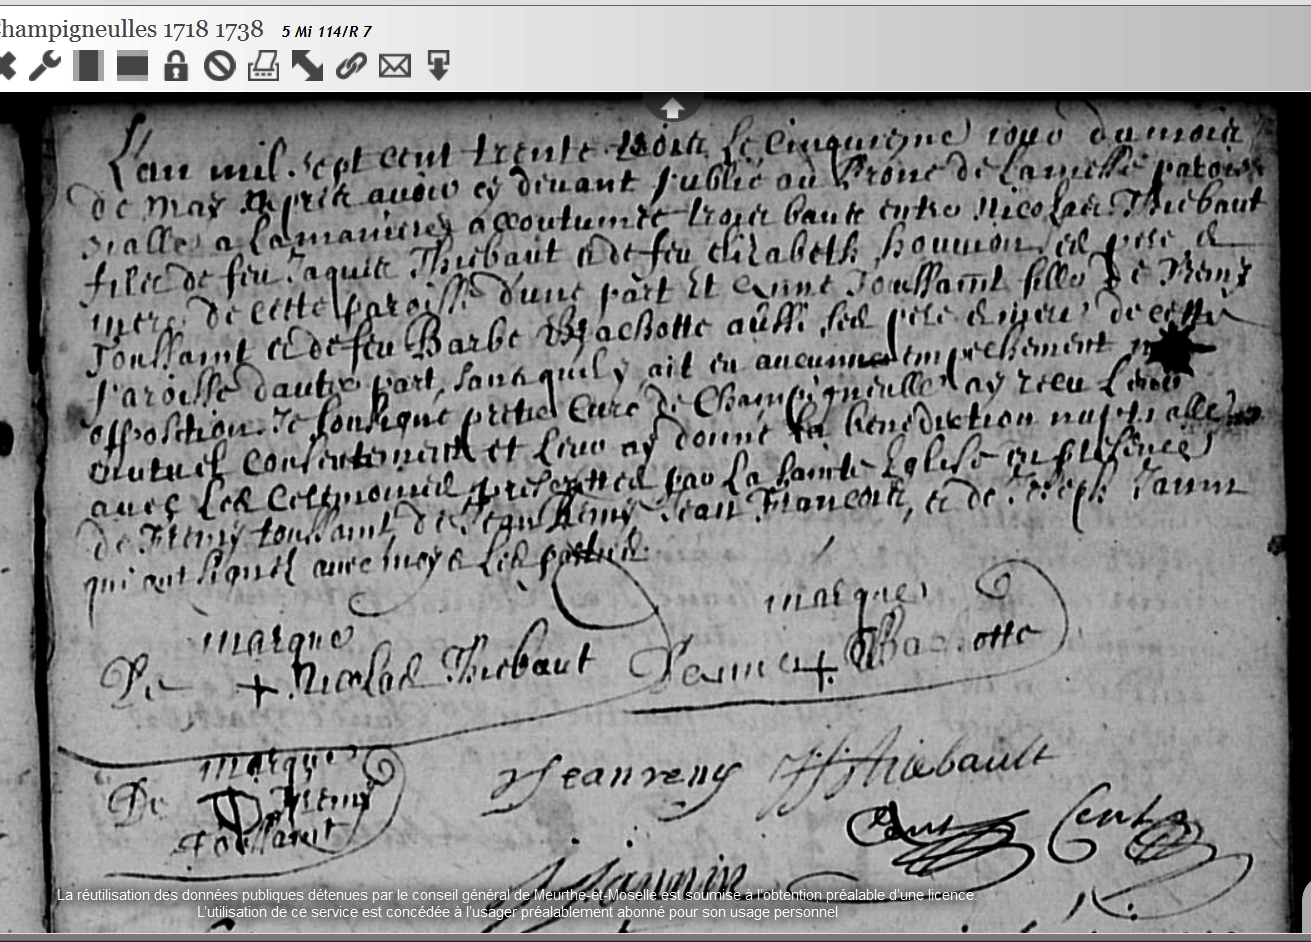 hampigneulles 1718 1738 5 Mi 114/R 7
L'an mil sept cent trente trois Le cinquiéme jour du mois
de may apres avoir cy devant publié au Prone de la messe parois
sialle a la maniere accoutumée trois bants entre Nicolas Thiebaut
fils de feu Jaques Thiebaut et de feu Elizabeth ses pere et
mere de cette paroisse d'une part Et Anne Toussaint fille de Remy
Toussaint et de feu Barbe Bachotte aussi ses pere et mere de cette
Paroisse d'autre part, sans quil y ait eu aucunne empechement ny
opposition. Je soussigné prêtre Curé de Champigneulles ay receu Leur
mutuel consentement et Leur ay donné la benediction nuptialle
avec Les ceremonies prescrittes par La sainte Eglise en presence
de Remy toussaint, de Jean Remy Jean François, et de Joseph Jannin
qui ont signés avec moy et Les parties.
marque
marque
De + Nicolas Thiebaut + Bachotte
marque
De Remy
Toussaint
Jean remy
Thiebault
J Jannin
La réutilisation des données publiques détenues par le conseil général de Meurthe-et-Moselle est soumise à l'obtention préalable d'une licence.
L'utilisation de ce service est concédée à l'usager préalablement abonné pour son usage personnel